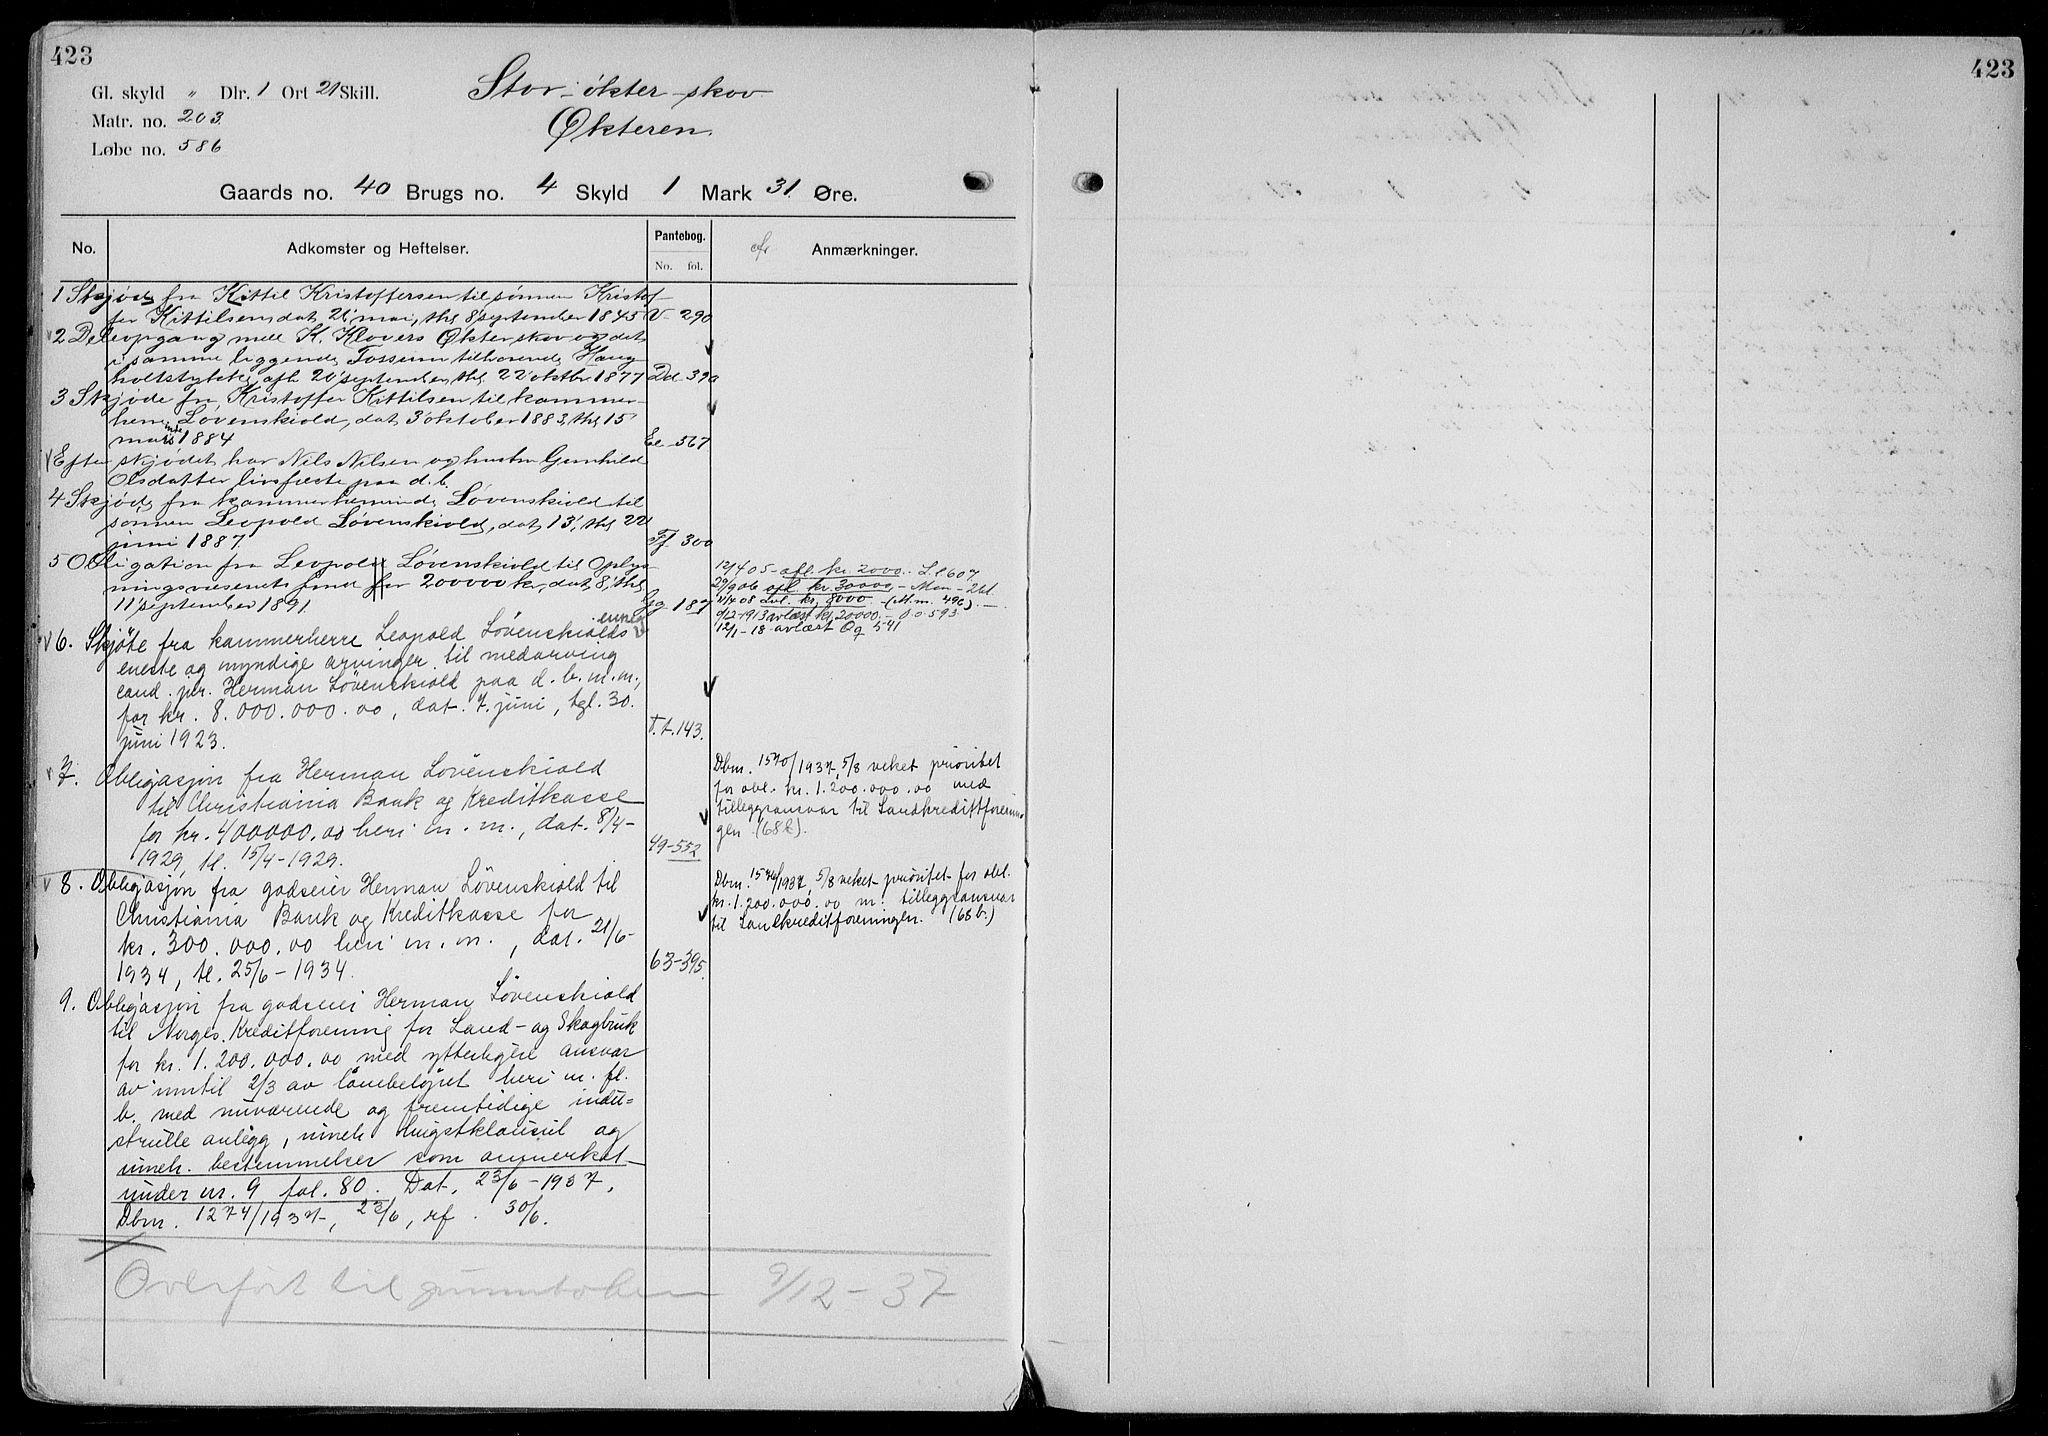 423
423
Gl. skyld " Dlr. 1 Ort 21 Skill.
Matr. no. 203
Løbe no. 586
Stor-økter-skov
Økteren.
Gaards no. 40 Brugs no. 4 Skyld 1 Mark 31 Øre.
No. Adkomster og Heftelser. Pantebog. No. fol. Anmærkninger.
1 Skjøde fra Kittil Kristoffersen til sønnen Kristof-
fer Kittilsen, dat. 26 mai, thl. 8 september 1845 V 290
2 Deleopgang mell. K. Klovers Økterskov og det
i samme liggende Fossum tilhørende Haug-
holtstykke, afh. 20 september, thl. 22 oktbr 1877 Dd 390
3 Skjøde fra Kristoffer Kittilsen til kammer-
herre Løvenskiold, dat. 3 oktober 1883, thl. 15
mars 1884 Ee-567
Efter skjødet har Nils Nilsen og hustru Gunhild
Olsdatter livsfæste paa d. b.
4 Skjøde fra kammerherreinde Løvenskiold til
sønnen Leopold Løvenskiold, dat. 13, thl. 22
juni 1887. Ff 300
5 Obligation fra Leopold Løvenskiold til Oplys-
ningsvæsenets fond for 200000 kr, dat. 8, thl.
11 september 1891. Gg 187
12/4 05 - afl. kr. 2000. - Ll 607
29/9 06 afl. kr. 30000 -
11/4 08 avl. kr. 8000 - (M.m. 496).
9/12-1913 avlæst kr. 20000. - O o 593
12/1-18 avlæst Qq 541
6. Skjøte fra kammerherre Leopold Løvenskiolds
eneste og myndige arvinger til medarving
cand. jur. Herman Løvenskiold paa d. b. m. m.,
for kr. 8.000.000.00, dat. 7. juni, tgl. 30.
juni 1923. T.t. 143.
7. Obligasjon fra Herman Løvenskiold
til Christiania Bank og Kreditkasse
for kr. 400000.00 heri m. m., dat. 8/4-
1929, tl. 15/4-1929. 49-552
Dbnr. 1570/1937, 5/8 veket prioritet
for obl. kr. 1.200.000.00 med
tilleggsansvar til Landkreditforenin-
gen (68b).
8. Obligasjon fra godseier Herman Løvenskiold til
Christiania Bank og Kreditkasse for
kr. 300.000.00 heri m. m., dat. 21/6-
1934, tl. 25/6-1934. 63-395.
Dbnr. 1570/1937, 5/8 veket prioritet for obl.
kr. 1.200.000.00 m. tilleggsansvar
til Landkreditforeningen. (68b.)
9. Obligasjon fra godseier Herman Løvenskiold
til Norges Kreditforening for Land- og Skogbruk
for kr. 1.200.000.00 med ytterligere ansvar
av inntil 2/3 av lånebeløpet heri m. fl.
b. med nuværende og fremtidige indu-
strielle anlegg, inneh. hugstklausul og
inneh. bestemmelser som anmerket
under nr. 9 fol. 80. Dat. 23/6-1937,
Dbnr. 1274/1937, 23/6, rf. 30/6.
Overført til grunnboken 9/12-37